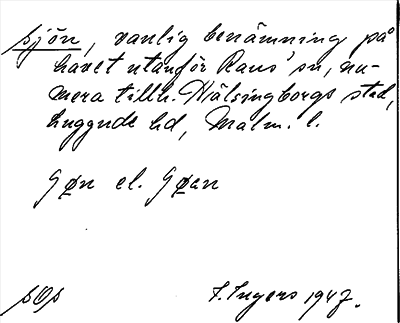 sjön, vanlig benämning på
havet utanför Raus' sn, nu-
mera tillh. Hälsingborgs stad,
Luggude hd, Malm. l.
Gøn el. Gøan
sOs
I. Ingers 1947.